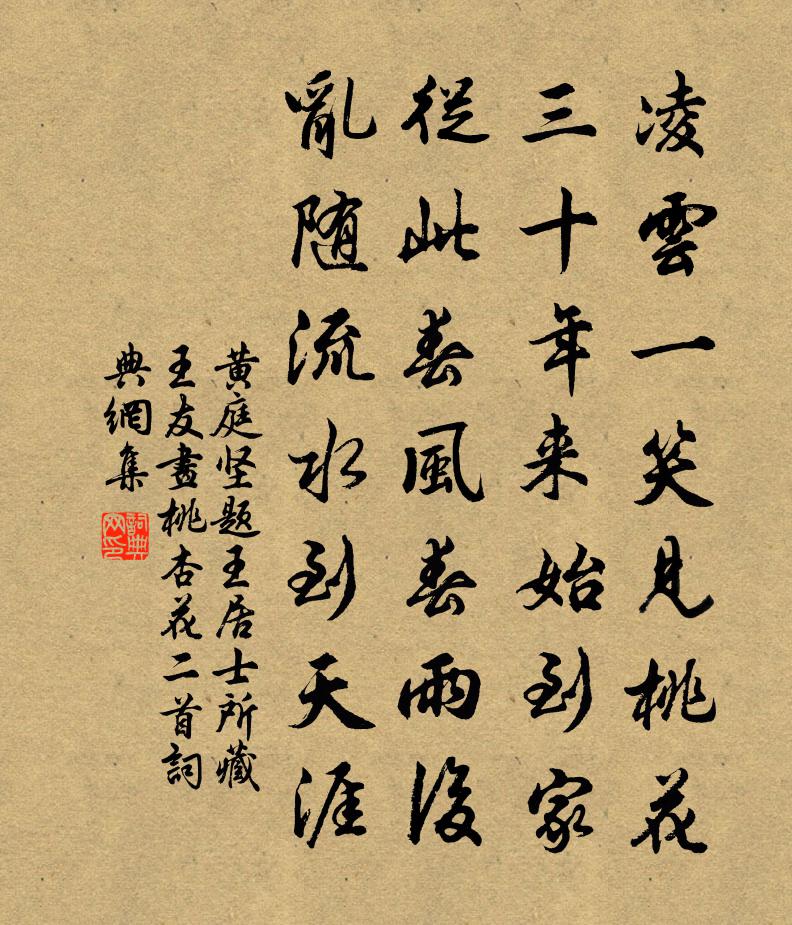 凌雲一笑見桃花
三十年来始到家
從此春風春雨後
亂随流水到天涯
黄庭坚题王居士所藏
王友畫桃杏花二首詞
典網集
詞典
网印